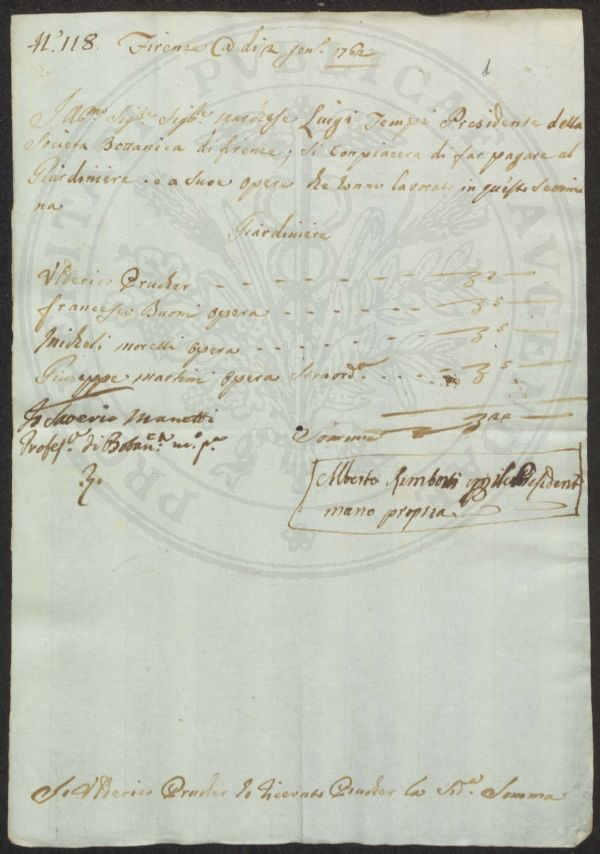 N.° 118. Firenze @ di 2 Jen.° 1762
Sig.re Sig.re Marchese Luigi Tempi Presidente della
Societa Bottanica di firenze, si Conpiacera di far pagare al
Giardiniere e a Suoe Opere che lavorato in questa Settima
na
Giardiniere
Ulderico Prucker
francesco Buoni opera 5
Micheli morelli opera 5
Giuseppe martini opera 5
Io Saverio Manetti
Profes.re di Botan.ca m.o p.a
Somma
Alberto Rimbotti Presidente
mano propria
Io Ulderico Prucker o ricevuto la Sd.a Somma